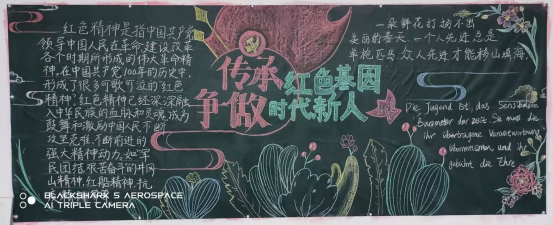 红色精神是指中国共产党
领导中国人民在革命建设改革
各个时期所形成的伟大革命精
神,在中国共产党100年的历史中,
形成了很多可歌可泣的红色
精神,红色精神已经深深融
入中华民族的血脉和灵魂,成为
鼓舞和激励中国人民不断
攻坚克难,不断前进的
强大精神动力,如:军
民团结,艰苦奋斗的井冈
山精神,红船精神,抗
传承
红色基因
争做
时代新人
一朵鲜花打扮不出
美丽的春天,一个人先进总是
单枪匹马,众人先进才能移山填海。
Die Jugend ist das Sensibelste
Barometer der Zeit. Sie muss die
ihr übertragene Verantwortung
übernehmen, und ihr
gebührt die Ehre
BLACKSHARK 5 AEROSPACE
AI TRIPLE CAMERA